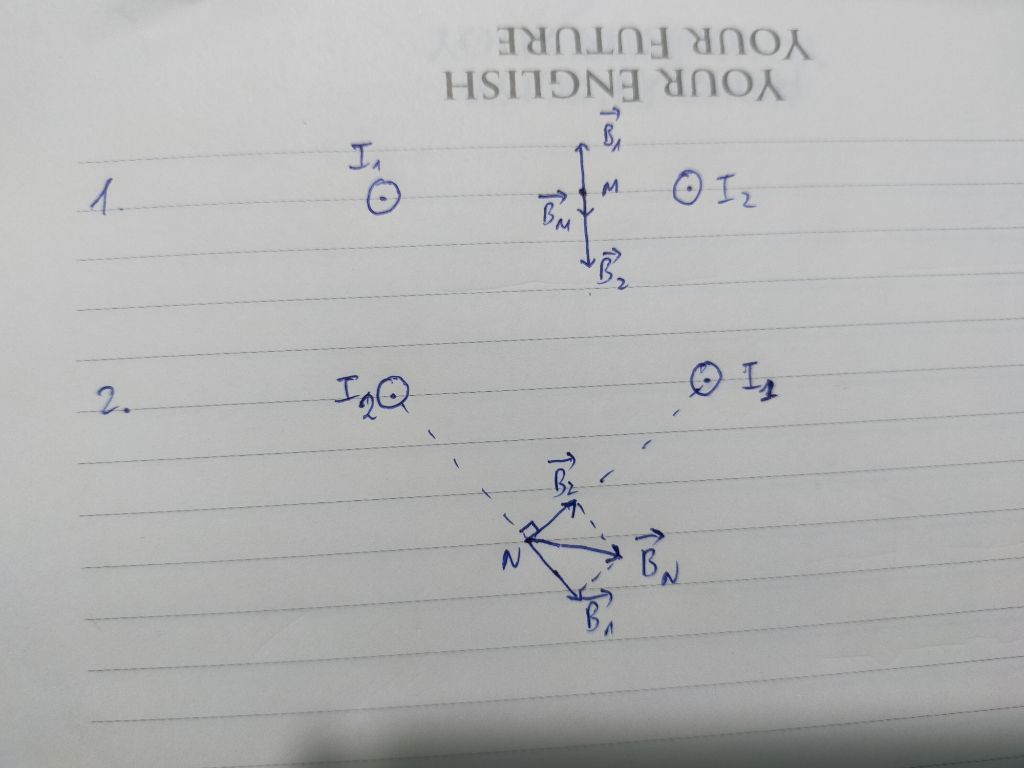 YOUR ENGLISH
YOUR FUTURE
1.
I₁
B₁
M
I₂
B_M
B₂
2.
I₂
I₁
B₂
N
B_N
B₁